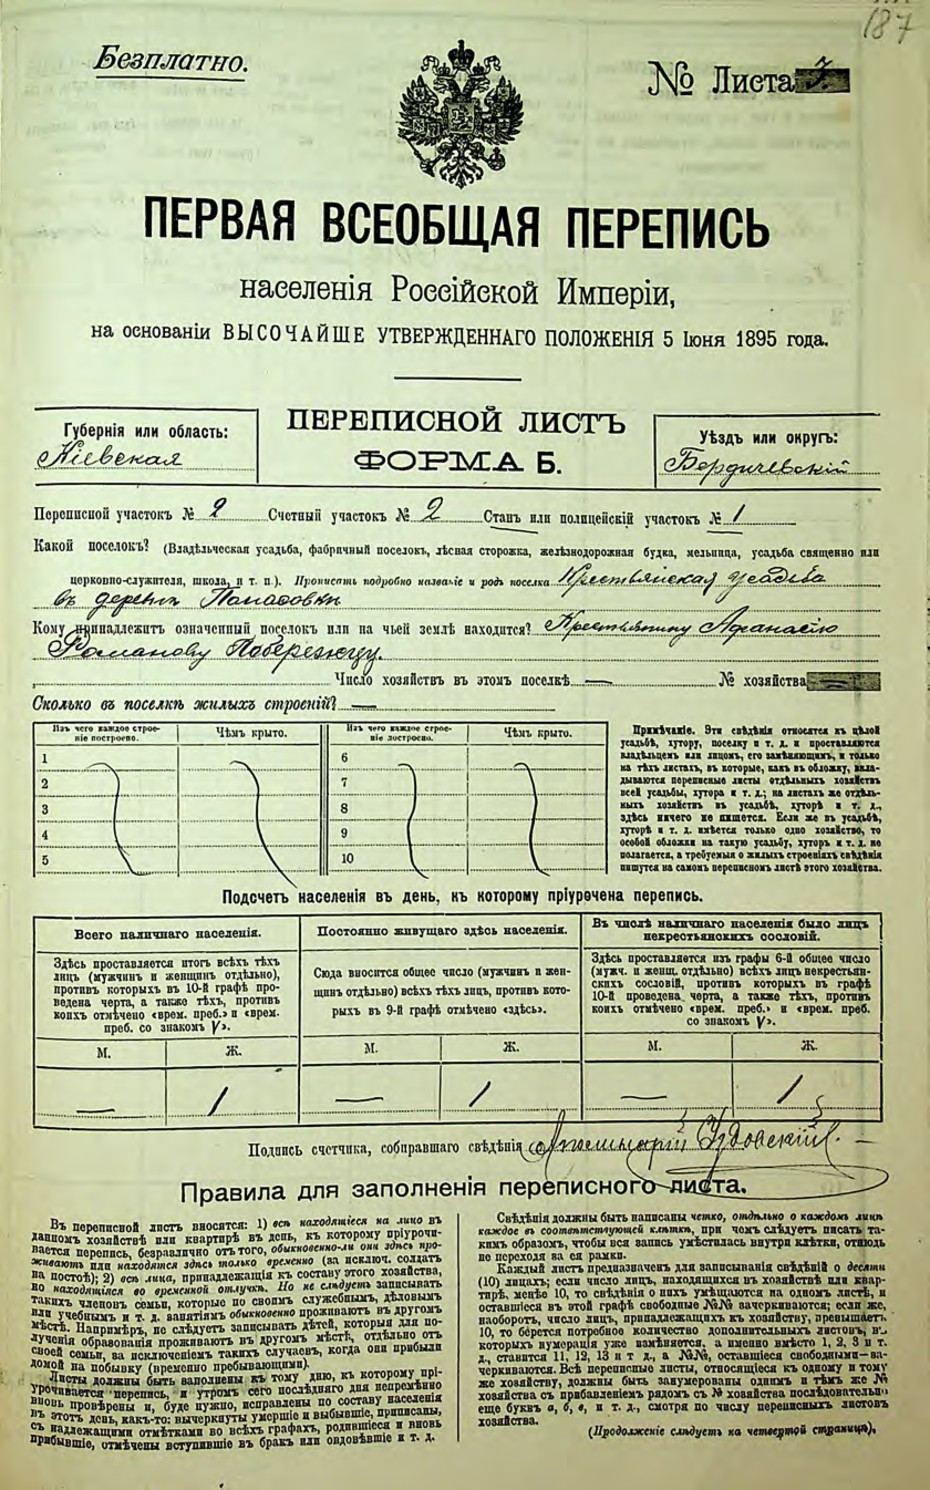 187
Безплатно.
№ Листа 7.
ПЕРВАЯ ВСЕОБЩАЯ ПЕРЕПИСЬ
населенія Россійской Имперіи,
на основаніи ВЫСОЧАЙШЕ УТВЕРЖДЕННАГО ПОЛОЖЕНІЯ 5 Іюня 1895 года.
Губернія или область:
Кіевская
ПЕРЕПИСНОЙ ЛИСТЪ
ФОРМА Б.
Уѣздъ или округъ:
Бердичевскій
Переписной участокъ № 2 Счетный участокъ № 2 Станъ или полицейскій участокъ № 1
Какой поселокъ? (Владѣльческая усадьба, фабричный поселокъ, лѣсная сторожка, желѣзнодорожная будка, мельница, усадьба священно или
церковно-служителя, школа, и т. п.). Прописать подробно названіе и родъ поселка Крестьянская усадьба
въ деревнѣ
Кому принадлежитъ означенный поселокъ или на чьей землѣ находится? Крестьянину Афанасію
Романову Побережцу.
Число хозяйствъ въ этомъ поселкѣ — № хозяйства
Сколько въ поселкѣ жилыхъ строеній? —
Изъ чего каждое строеніе построено.
Чѣмъ крыто.
Изъ чего каждое строеніе построено.
Чѣмъ крыто.
1
2
3
4
5
6
7
8
9
10
Примѣчаніе. Эти свѣдѣнія относятся къ цѣлой
усадьбѣ, хутору, поселку и т. д. и проставляются
владѣльцемъ или лицомъ, его замѣняющимъ, и только
на тѣхъ листахъ, въ которые, какъ въ обложку, вкла-
дываются переписные листы отдѣльныхъ хозяйствъ
всей усадьбы, хутора и т. д.; на листахъ же отдѣль-
ныхъ хозяйствъ въ усадьбѣ, хуторѣ и т. д.,
здѣсь ничего не пишется. Если же въ усадьбѣ,
хуторѣ и т. д. имѣется только одно хозяйство, то
особой обложки на такую усадьбу, хуторъ и т. д. не
полагается, а требуемыя о жилыхъ строеніяхъ свѣдѣнія
пишутся на самомъ переписномъ листѣ этого хозяйства.
Подсчетъ населенія въ день, къ которому пріурочена перепись.
Всего наличнаго населенія.
Здѣсь проставляется итогъ всѣхъ тѣхъ
лицъ (мужчинъ и женщинъ отдѣльно),
противъ которыхъ въ 10-й графѣ про-
ведена черта, а также тѣхъ, противъ
коихъ отмѣчено «врем. преб.» и «врем.
преб. со знакомъ V».
М.
Ж.
—
1
Постоянно живущаго здѣсь населенія.
Сюда вносится общее число (мужчинъ и жен-
щинъ отдѣльно) всѣхъ тѣхъ лицъ, противъ кото-
рыхъ въ 9-й графѣ отмѣчено «здѣсь».
М.
Ж.
—
1
Въ числѣ наличнаго населенія было лицъ
некрестьянскихъ сословій.
Здѣсь проставляется изъ графы 6-й общее число
(мужч. и женщ. отдѣльно) всѣхъ лицъ некрестьян-
скихъ сословій, противъ которыхъ въ графѣ
10-й проведена черта, а также тѣхъ, противъ
коихъ отмѣчено «врем. преб.» и «врем. преб.
со знакомъ V».
М.
Ж.
—
1
Подпись счетчика, собиравшаго свѣдѣнія
Правила для заполненія переписного листа.
Въ переписной листъ вносятся: 1) всѣ находящіеся на лицо въ
данномъ хозяйствѣ или квартирѣ въ день, къ которому пріурочи-
вается перепись, безразлично отъ того, обыкновенно-ли они здѣсь про-
живаютъ или находятся здѣсь только временно (за исключ. солдатъ
на постоѣ); 2) всѣ лица, принадлежащія къ составу этого хозяйства,
но находящіеся во временной отлучкѣ. Но не слѣдуетъ записывать
такихъ членовъ семьи, которые по своимъ служебнымъ, дѣловымъ
или учебнымъ и т. д. занятіямъ обыкновенно проживаютъ въ другомъ
мѣстѣ. Напримѣръ, не слѣдуетъ записывать дѣтей, которыя для по-
лученія образованія проживаютъ въ другомъ мѣстѣ, отдѣльно отъ
своей семьи, за исключеніемъ такихъ случаевъ, когда они прибыли
домой на побывку (временно пребывающими).
Листы должны быть наполнены къ тому дню, къ которому прі-
урочивается перепись, и утромъ сего послѣдняго дня непремѣнно
вновь провѣрены и, буде нужно, исправлены по составу населенія
въ этотъ день, какъ-то: вычеркнуты умершіе и выбывшіе, приписаны,
съ надлежащими отмѣтками во всѣхъ графахъ, родившіеся и вновь
прибывшіе, отмѣчены вступившіе въ бракъ или овдовѣвшіе и т. д.
Свѣдѣнія должны быть написаны четко, отдѣльно о каждомъ лицѣ
каждое въ соотвѣтствующей клѣткѣ, при чемъ слѣдуетъ писать та-
кимъ образомъ, чтобы вся запись умѣстилась внутри клѣтки, отнюдь
не переходя за ея рамки.
Каждый листъ предназначенъ для записыванія свѣдѣній о десяти
(10) лицахъ; если число лицъ, находящихся въ хозяйствѣ или квар-
тирѣ, менѣе 10, то свѣдѣнія о нихъ умѣщаются на одномъ листѣ, и
оставшіеся въ этой графѣ свободные №№ зачеркиваются; если же,
наоборотъ, число лицъ, принадлежащихъ къ хозяйству, превышаетъ
10, то берется потребное количество дополнительныхъ листовъ, въ
которыхъ нумерація уже измѣняется, а именно вмѣсто 1, 2, 3 и т.
д., ставится 11, 12, 13 и т. д., а №№, оставшіеся свободными—за-
черкиваются. Всѣ переписные листы, относящіеся къ одному и тому
же хозяйству, должны быть занумерованы однимъ и тѣмъ же №
хозяйства съ прибавленіемъ рядомъ съ № хозяйства послѣдовательно
еще буквъ а, б, в, и т. д., смотря по числу переписныхъ листовъ
хозяйства.
(Продолженіе слѣдуетъ на четвертой страницѣ),